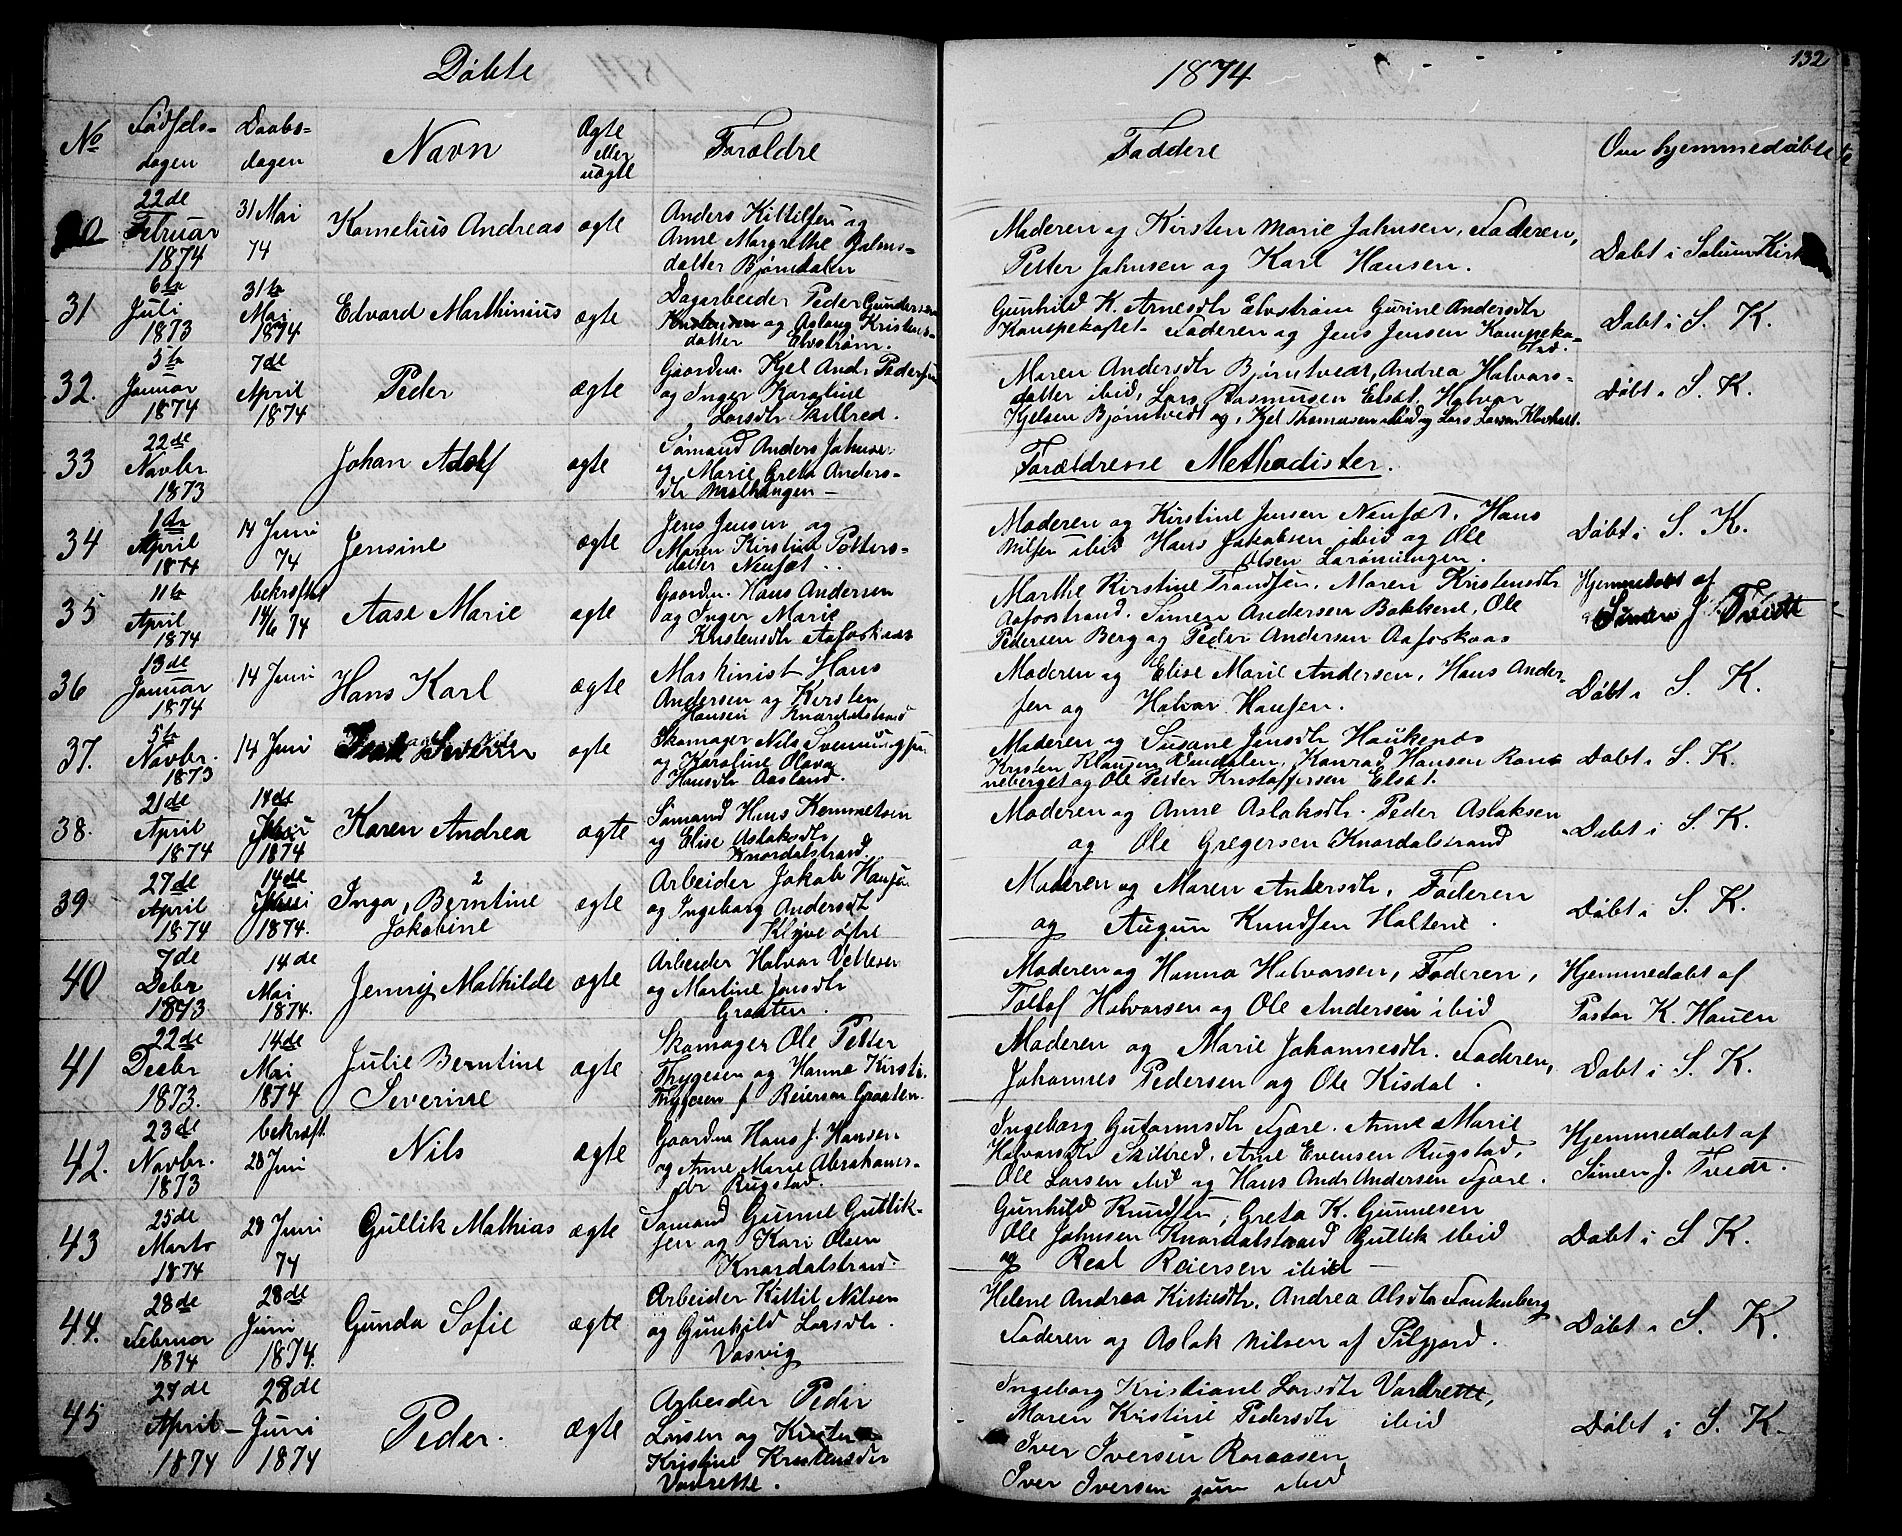 Döbte
1874
132
No
Födsels-
dagen
Daabs-
dagen
Navn
Ægte
eller
uægte
Forældre
Faddere
Om hjemmedöbte
22de
Februar
1874
31 Mai
74
Kornelius Andreas
ægte
Anders Kittilsen og
Anne Margrethe
datter Bjørndalen
Moderen og Kirsten Marie Johnsen, Faderen,
Petter Johnsen og Karl Hansen.
Døbt i Solum Kirke
31
6te
Juli
1873
31te
Mai
1874
Edvard Marthinius
ægte
Dagarbeider Peder Gundersen
og Aslaug Kristens-
datter Elvstrøm.
Gunhild K. Arnesdtr Elvstrøm Gurine Andersdtr
Kampekastet Faderen og Jens Jensen Kampeka-
Døbt i S. K.
32.
5te
Januar
1874
7de
April
1874
Peder
ægte
Gaardm. Kjel Andr. Pedersen
og Inger Karoline
Larsdtr Skilbred.
Maren Andersdtr Bjørntvedt, Andrea Halvors-
datter ibid, Lars Rasmussen Elsæt, Halvor
Kjelsen Bjørntvedt og Kjel Thomassen ibid og Lars Larsen
Døbt i S. K.
33
22de
Novbr
1873
Johan Adolf
ægte
Sømand Anders Johnsen
og Marie Greta Anders-
dtr
Forældrene Methodister.
34
1ste
April
1874
14 Juni
74
Jensine
ægte
Jens Jensen og
Maren Kirstine Petters-
datter Neufæt
Moderen og Kirstine Jensen Neufæt, Hans
Nilsen ibid Hans Jakobsen ibid og Ole
Olsen
Døbt i S. K.
35
11te
April
1874
bekræftet
14/6 74
Aase Marie
ægte
Gaardm. Hans Andersen
og Inger Marie
Kristensdtr
Marthe Kirstine Trondsen, Maren Kristensdtr
Simen Andersen Bakkene, Ole
Pedersen Berg og Peder Andersen
Hjemmedøbt af
Simen J. Tvedt
36
13de
Januar
1874
14 Juni
Hans Karl
ægte
Maskinist Hans
Andersen og Kirsten
Hansen Knardalstrand
Moderen og Elise Marie Andersen, Hans Ander
sen og Halvor Hansen.
Døbt i S. K.
37.
5te
Novbr.
1873
14 Juni
Severin
ægte
Skomager Nils Svenningsen
og Karoline Olava
Hansdtr Aasland.
Moderen og Susane Jensdtr Haukenes
Kristen Klausen Vandalen, Konrad Hansen Ron-
neberget og Ole Petter Kristoffersen Elsæt.
Døbt i S. K.
38.
21de
April
1874
14de
Juni
1874
Karen Andrea
ægte
Sømand Hans Kemmetsen
og Elise Aslaksdtr
Knardalstrand.
Moderen og Anne Aslaksdtr. Peder Aslaksen
og Ole Gregersen Knardalstrand
Døbt i S. K.
39
27de
April
1874
14de
Juni
1874.
2
Inga, Berntine
Jakobine
ægte
Arbeider Jakob Hansen
og Ingeborg Andersdtr
Klyve østre
Moderen og Maren Andersdtr, Faderen
og Augun Knudsen Haltene.
Døbt i S. K.
40
7de
Debr
1873
14de
Mai
1874.
Jenny Mathilde
ægte
Arbeider Halvor Vettesen
og Martine Jonsdtr
Graaten.
Moderen og Hanna Halvorsen, Faderen,
Tollof Halvorsen og Ole Andersen ibid
Hjemmedøbt af
Pastor K. Hauen
41
22de
Decbr
1873.
14de
Mai
1874
Julie Berntine
Severine
ægte
Skomager Ole Petter
Thygesen og Hanna Kirsti.
Thygesen f. Reierson Graaten.
Moderen og Marie Johannesdtr. Faderen,
Johannes Pedersen og Ole Kisdal.
Døbt i S. K.
42.
23de
Novbr.
1873
bekræft.
28 Juni
Nils
ægte
Gaardm Hans J. Hansen
og Anne Marie Abrahams-
dtr Rugstad.
Ingeborg Gutormsdtr Fjære. Anne Marie
Halvorsdtr Skilbred, Arne Evensen Rugstad,
Ole Larsen ibid og Hans Andr Andersen Fjære.
Hjemmedøbt af
Simen J. Tvedt.
43
25de
Marts
1874
28 Juni
74
Gullik Mathias
ægte
Sømand Gunne Gullik-
sen og Kari Olsen
Knardalstrand.
Gunhild Knudsen, Greta K. Gunnesen
Ole Johnsen Knardalstrand Gullik ibid
og Real Reiersen ibid
Døbt i S. K.
44.
28de
Februar
1874
28de
Juni
1874.
Gunda Sofie
ægte
Arbeider Kittil Nilsen
og Gunhild Larsdtr.
Vasvig
Helene Andrea Kittilsdtr, Andrea Olsdtr Falkenberg
Faderen og Aslak Nilsen af
Døbt i S. K.
45
April
1874
28de
Juni
1874
Peder.
ægte
Arbeider Peder
Larsen og
Kristine Kristensdtr
Vadrette.
Ingeborg Kristiane Larsdtr Vadrette,
Maren Kristine Pedersdtr ibid
Iver Iversen Roraasen
Iver Iversen jun ibid
Døbt i S. K.